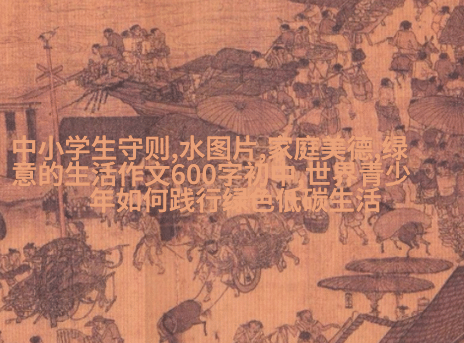 中小学生守则,水图片,家庭美德,绿
意的生活作文600字初中,世界青少
年如何践行绿色低碳生活